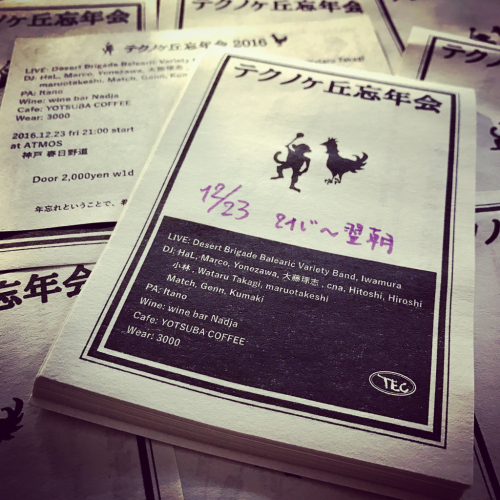 テクノケ丘忘年会 2016
LIVE: Desert Brigade Balearic Variety
DJ: HaL, Marco, Yonezawa, 大藤琢志
Wataru Takagi
maruotakeshi, Match, Genn, Kum
PA: Itano
Wine: wine bar Nadja
Cafe: YOTSUBA COFFEE
Wear: 3000
2016.12.23 fri 21:00 start
at ATMOS
神戸 春日野道
Door 2,000yen w1d
年忘れということで、
テクノケ丘忘年会
12/23 21じ〜翌朝
LIVE: Desert Brigade Balearic Variety Band, Iwamura
DJ: HaL, Marco, Yonezawa, 大藤琢志, cna, Hitoshi, Hiroshi
小林, Wataru Takagi, maruotakeshi
Match, Genn, Kumaki
PA: Itano
Wine: wine bar Nadja
Cafe: YOTSUBA COFFEE
Wear: 3000
TEC
テクノケ
忘年会